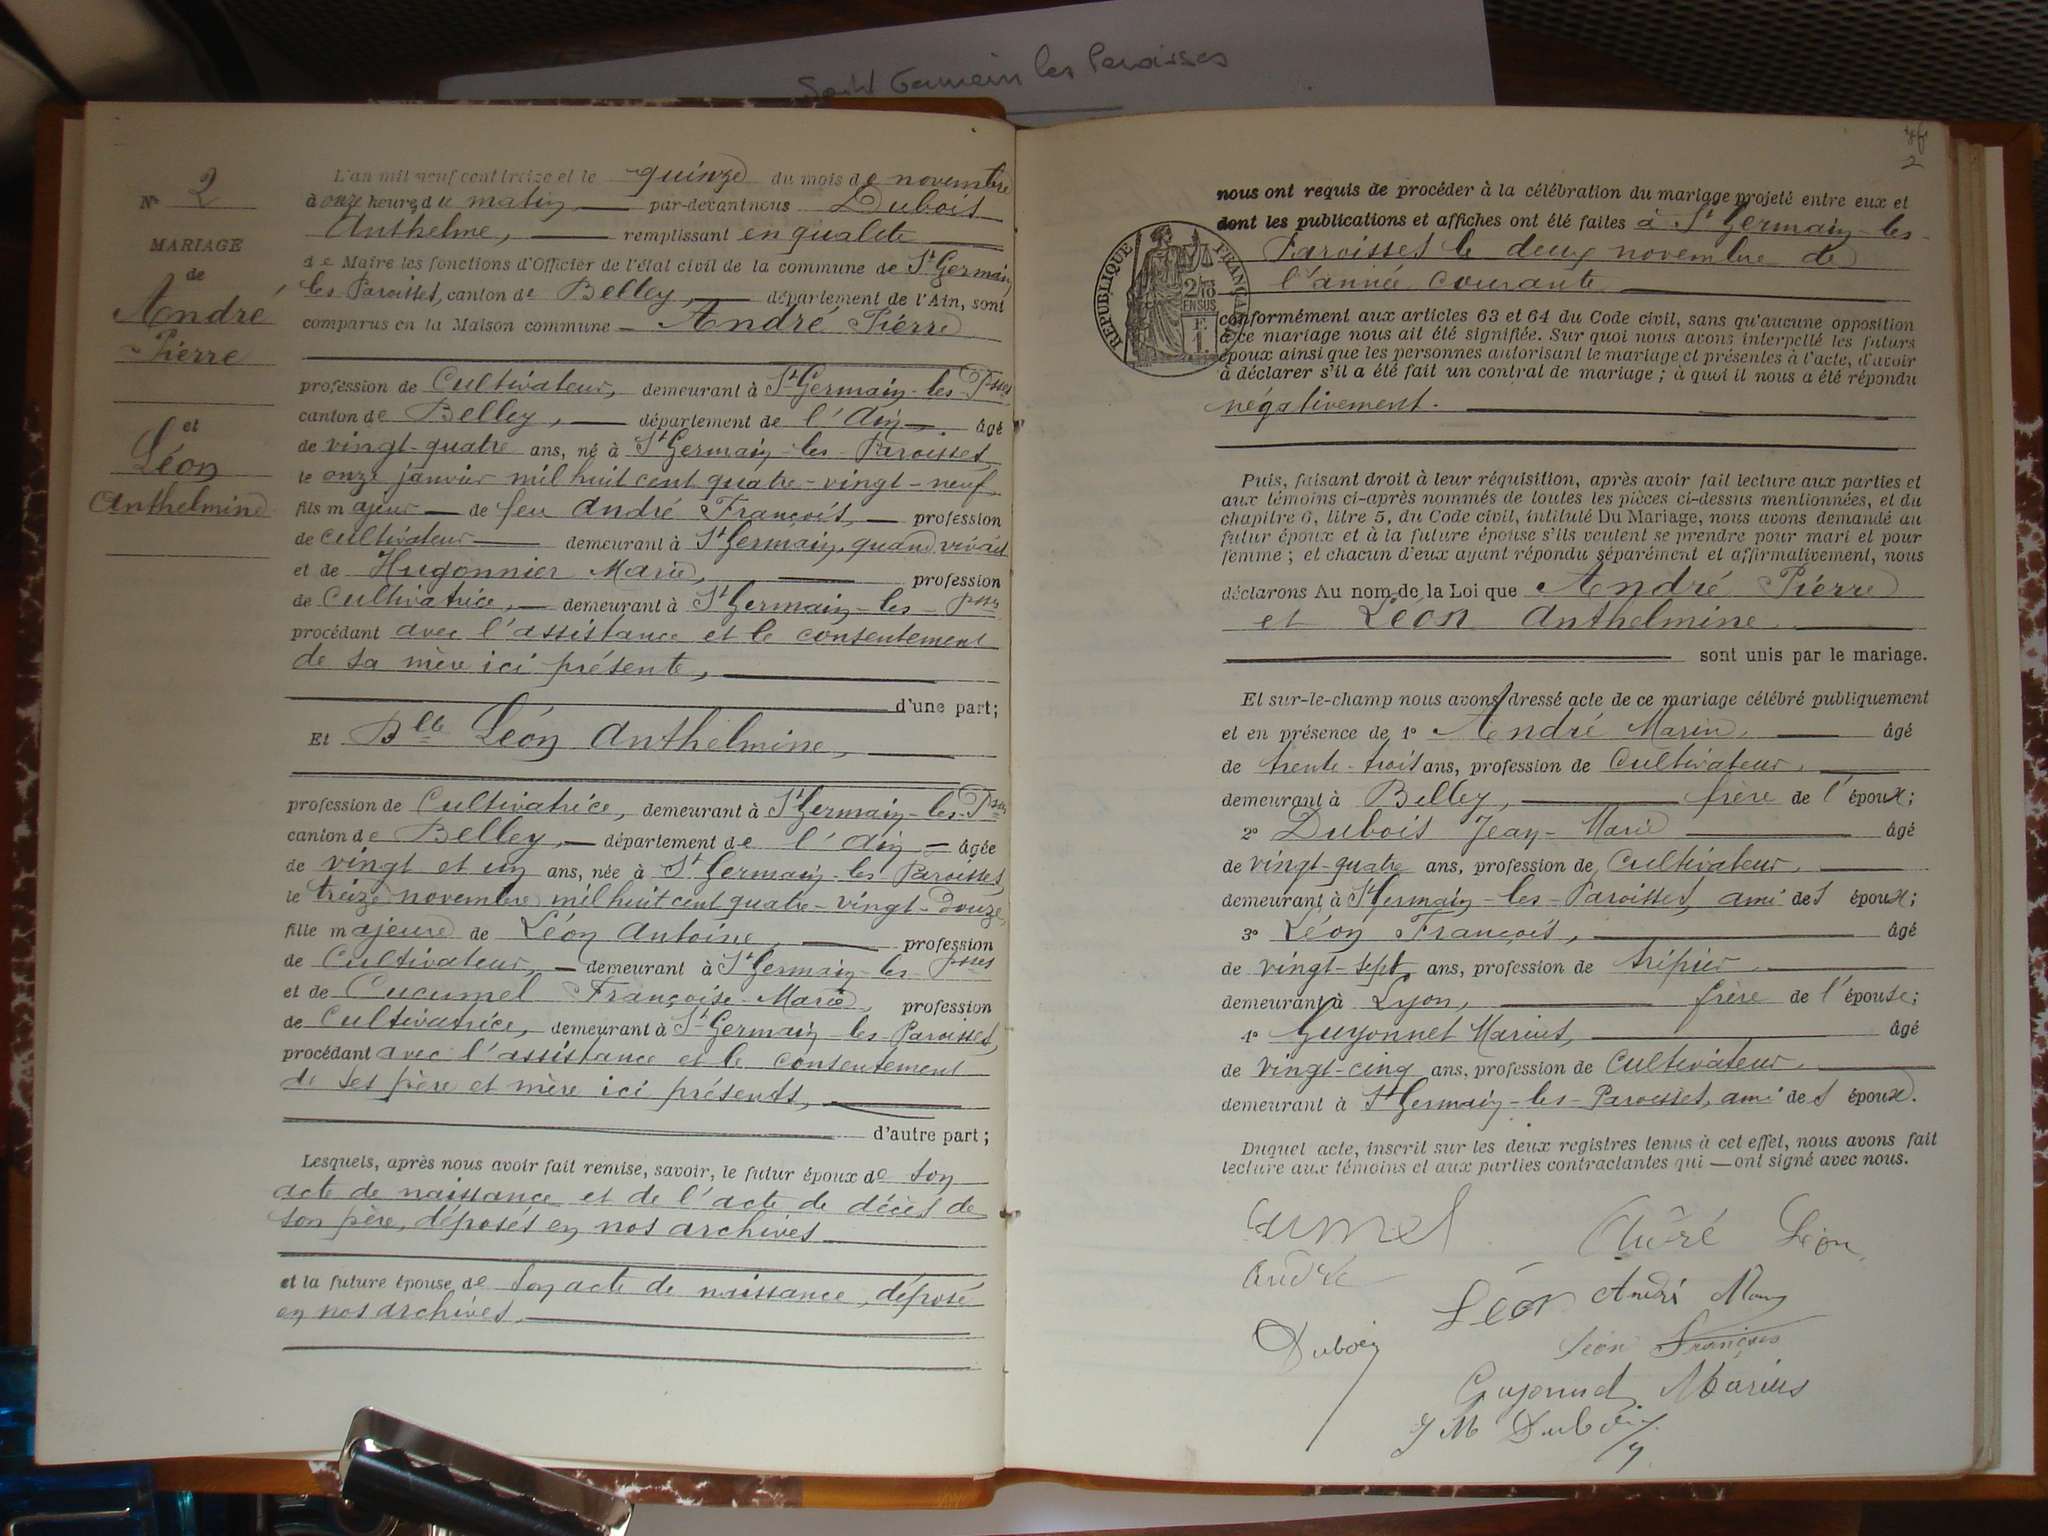 Saint Germain les Paroisses
N° 2
MARIAGE
de
André
Pierre
et
Léon
Anthelmine
L'an mil neuf cent treize et le quinze du mois de novembre
à onze heures du matin par-devant nous Dubois
Anthelme, remplissant en qualité
de Maire les fonctions d'Officier de l'état civil de la commune de St Germain
les Paroisses, canton de Belley, département de l'Ain, sont
comparus en la Maison commune André Pierre
profession de Cultivateur, demeurant à St Germain-les-Psses
canton de Belley, département de l'Ain, âgé
de vingt-quatre ans, né à St Germain-les-Paroisses,
le onze janvier mil huit cent quatre-vingt-neuf
fils majeur de feu André François, profession
de cultivateur demeurant à St Germain, quand vivait
et de Hugonnier Marie, profession
de Cultivatrice, demeurant à St Germain-les-psses
procédant avec l'assistance et le consentement
de sa mère ici présente,
d'une part;
Et Dlle Léon Anthelmine,
profession de Cultivatrice, demeurant à St Germain-les-Psses
canton de Belley, département de l'Ain âgée
de vingt et un ans, née à St Germain-les-Paroisses,
le treize novembre mil huit cent quatre-vingt-douze,
fille majeure de Léon Antoine, profession
de Cultivateur, demeurant à St Germain-les-psses
et de Cucumel Françoise-Marie, profession
de Cultivatrice, demeurant à St Germain-les-Paroisses,
procédant avec l'assistance et le consentement
de ses père et mère ici présents,
d'autre part;
Lesquels, après nous avoir fait remise, savoir, le futur époux de son
acte de naissance et de l'acte de décès de
son père, déposés en nos archives
et la future épouse de son acte de naissance, déposé
en nos archives.
2
nous ont requis de procéder à la célébration du mariage projeté entre eux et
dont les publications et affiches ont été faites à St Germain-les-
Paroisses le deux novembre de
l'année courante
RÉPUBLIQUE FRANÇAISE
2/10
EN SUS
F.
1.
conformément aux articles 63 et 64 du Code civil, sans qu'aucune opposition
à ce mariage nous ait été signifiée. Sur quoi nous avons interpellé les futurs
époux ainsi que les personnes autorisant le mariage et présentes à l'acte, d'avoir
à déclarer s'il a été fait un contrat de mariage; à quoi il nous a été répondu
négativement.
Puis, faisant droit à leur réquisition, après avoir fait lecture aux parties et
aux témoins ci-après nommés de toutes les pièces ci-dessus mentionnées, et du
chapitre 6, titre 5, du Code civil, intitulé Du Mariage, nous avons demandé au
futur époux et à la future épouse s'ils veulent se prendre pour mari et pour
femme; et chacun d'eux ayant répondu séparément et affirmativement, nous
déclarons Au nom de la Loi que André Pierre
et Léon Anthelmine
sont unis par le mariage.
Et sur-le-champ nous avons dressé acte de ce mariage célébré publiquement
et en présence de 1° André Marin, âgé
de trente-trois ans, profession de Cultivateur,
demeurant à Belley, frère de l'époux;
2° Dubois Jean-Marie âgé
de vingt-quatre ans, profession de Cultivateur
demeurant à St Germain-les-Paroisses, ami des époux;
3° Léon François, âgé
de vingt-sept ans, profession de tripier
demeurant à Lyon, frère de l'épouse;
4° Guyonnet Marius, âgé
de vingt-cinq ans, profession de Cultivateur
demeurant à St Germain-les-Paroisses, ami des époux.
Duquel acte, inscrit sur les deux registres tenus à cet effet, nous avons fait
lecture aux témoins et aux parties contractantes qui — ont signé avec nous.
André Léon
André
Léon André
Dubois
Léon François
Guyonnet Marius
J M Dubois